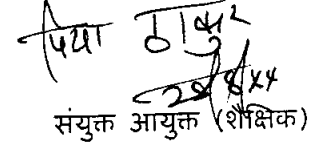 प्रिया ठाकुर
संयुक्त आयुक्त (शैक्षिक)